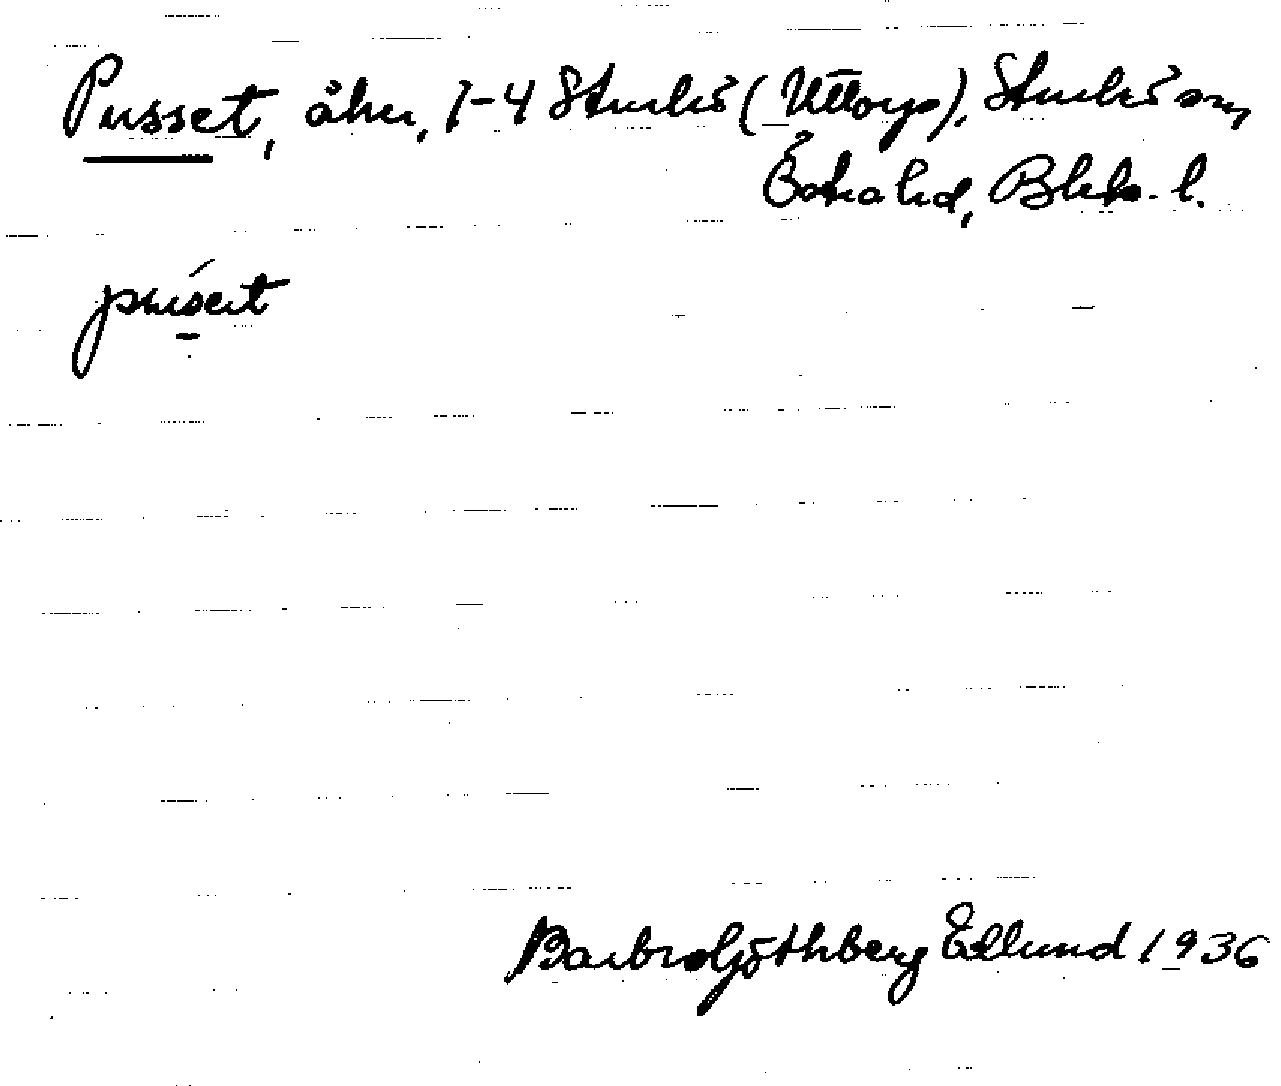 Pusset, åker, 1-4 Sturkö (Uttorp), Sturkö sn,
Östra hd,Blek. l.
puset
Barbro Göthberg Edlund 1936